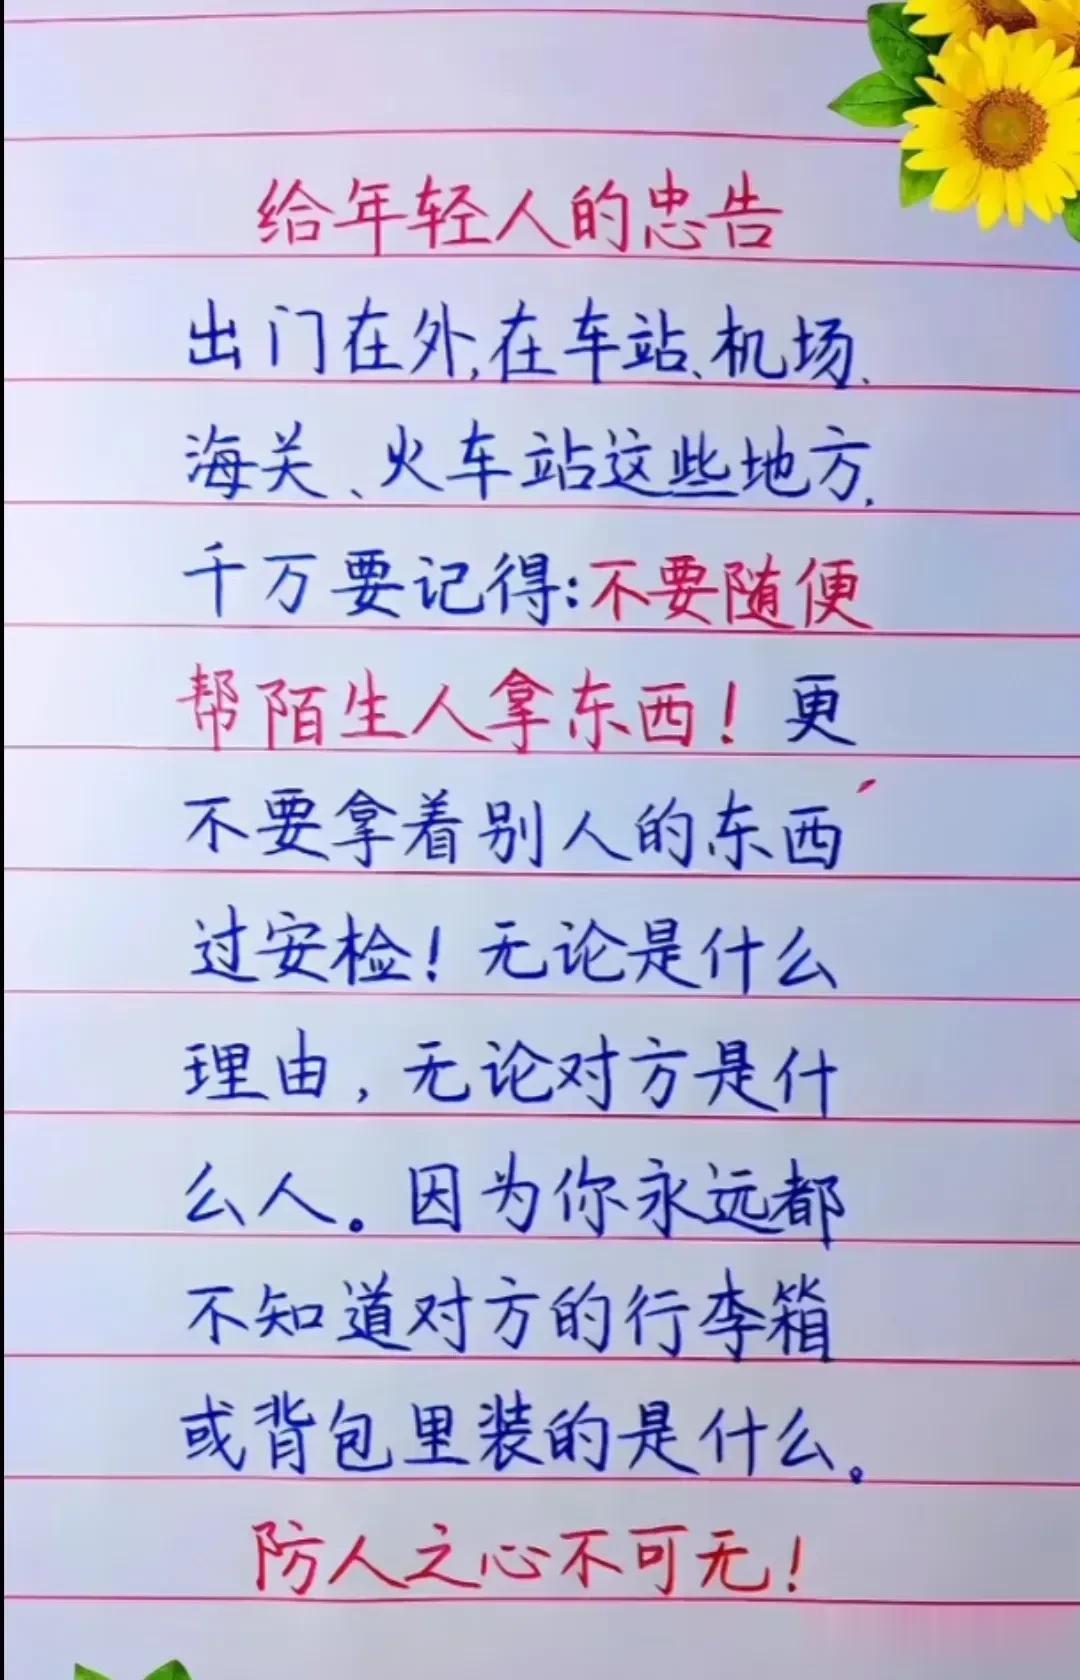 给年轻人的忠告
出门在外,在车站、机场、
海关、火车站这些地方,
千万要记得:不要随便
帮陌生人拿东西！更
不要拿着别人的东西
过安检！无论是什么
理由，无论对方是什
么人。因为你永远都
不知道对方的行李箱
或背包里装的是什么。
防人之心不可无！